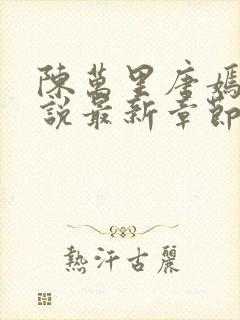 陳萬里唐嫣
說最新章節
熱汗古麗